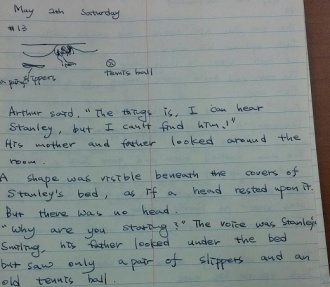 May 2th Saturday
#13
a pair slippers
tennis ball
Arthur said. "The things is, I can hear
Stanley, but I can't find him!"
His mother and father looked around the
room.
A shape was visible beneath the covers of
Stanley's bed, as if a head rested upon it.
But there was no head.
"Why are you staring?" The voice was Stanley
Smiling, his father looked under the bed
but saw only a pair of slippers and an
old tennis ball.